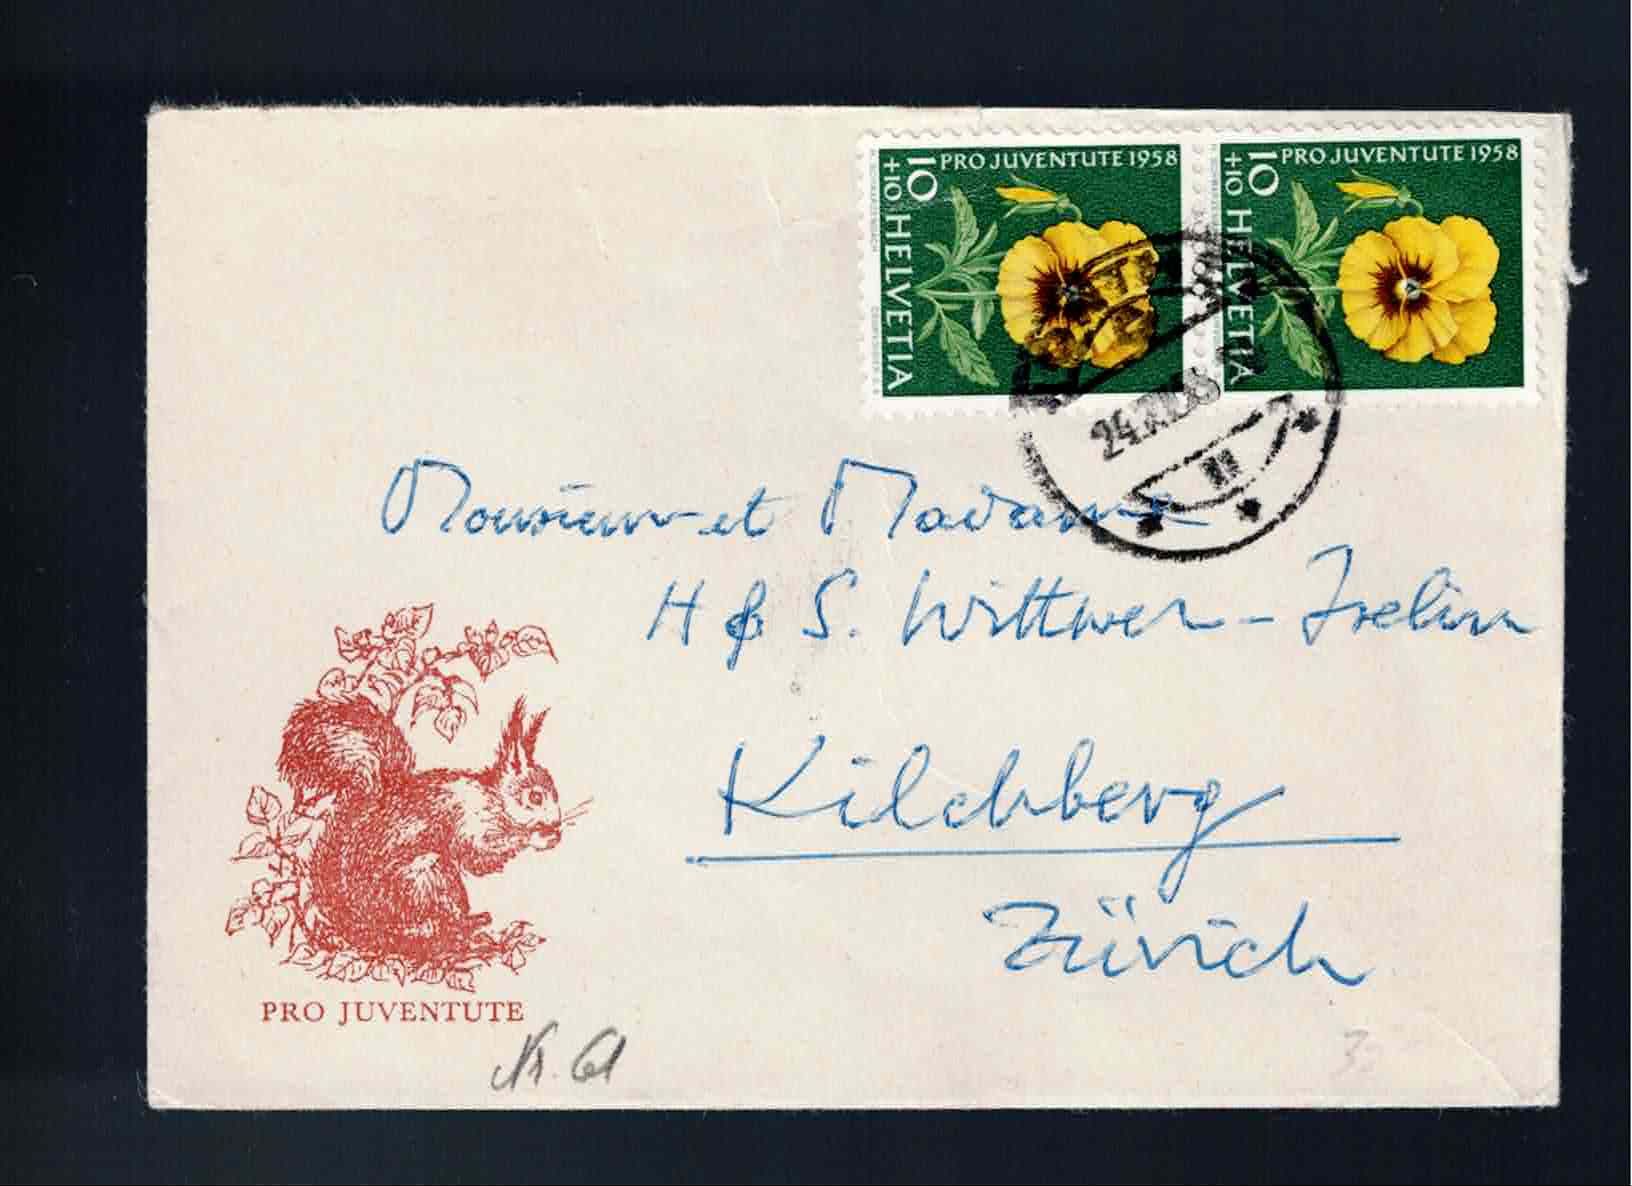 PRO JUVENTUTE 1958
10
+10
HELVETIA
PRO JUVENTUTE 1958
10
+10
HELVETIA
24.XII.58
Monsieur et Madame
H & S. Wittwer-Iselin
Kilchberg
Zürich
PRO JUVENTUTE